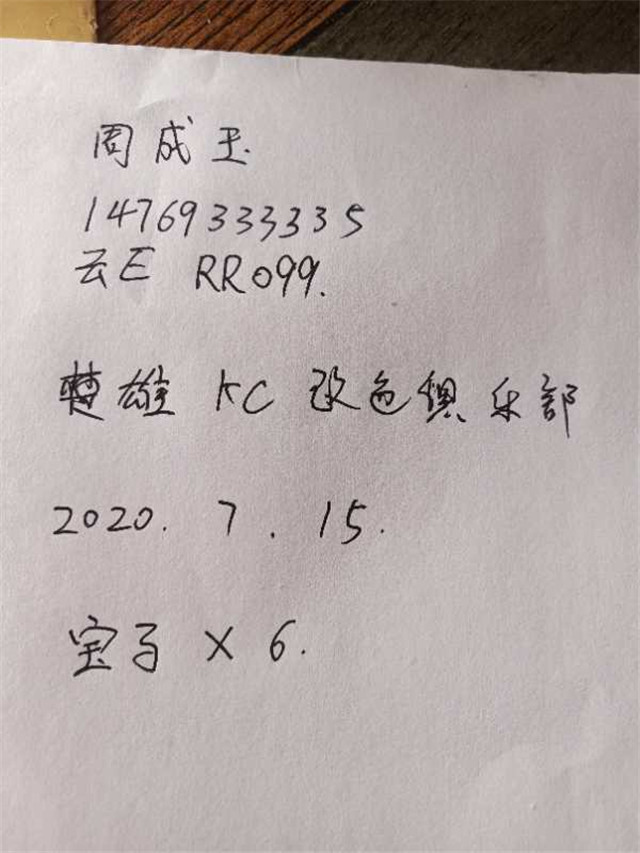 周成玉
14769333335
云E RR099.
楚雄 KC 改色俱乐部
2020. 7. 15.
宝马 X 6.